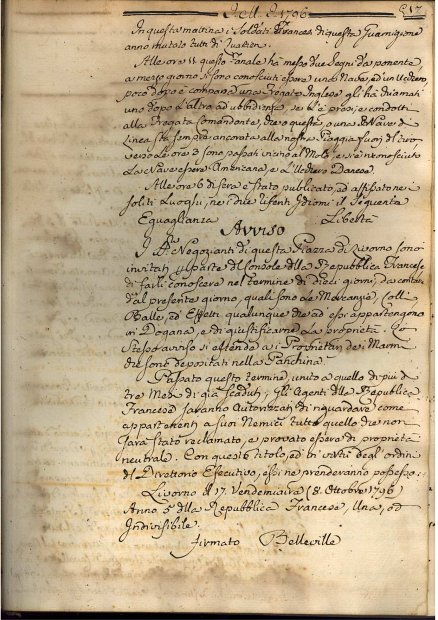 Dell A 1796
In questa mattina i Soldati Francesi di questa Guarnigione
anno mutato tutti di Quartier.
Alle ore 11 questo Fanale ha messo due Segni da ponente,
a mezzo giorno si sono conosciuti essere una Nave, ed un
poco dopo è comparsa una Fregata Inglese gli ha chiamati
uno dopo l'altro ad ubbidienza, se l'è presi, e condotti
alla Fregata Comandante, che questa, o una Nave di
Linea stà sempre ancorata alla nostra Spiaggia fuori del tiro,
verso le ore 2 sono passati vicino al Molo, e s'è riconosciuto
La Nave essere Americana, e L'Uchero Danese.
Alle ore 6 di sera è stato pubblicato, ed affissato nei
soliti Luoghi, nei due Idiomi il Seguente
Eguaglianza Libertà
Avviso
I Negozianti di questa Piazza di Livorno sono
invitati per parte del Console della Repubblica Francese
di farli conoscere nel termine di dieci giorni, da contare
dal presente giorno, quali sono le Mercanzie, Colli
Balle, ed Effetti qualunque che ad essi appartengono
in Dogana, e di giustificarne la proprietà. Lo
stesso avviso si estende ai Proprietari dei Marmi
che sono depositati nella Panchina.
Passato questo termine, unito a quello di più di
tre Mesi di già scaduti, gli Agenti della Repubblica
Francese saranno Autorizzati di riguardare come
appartenenti a suoi Nemici tutto quello che non
sarà stato reclamato, e provato essere di proprietà
neutrale. Con questo titolo, ed in virtù degli ordini
del Direttorio Esecutivo, essi ne prenderanno possesso.
Livorno il 17. Vendemiaira (8. Ottobre 1796
Anno 5 della Repubblica Francese, Una, ed
Indivisibile.
Firmato Belleville